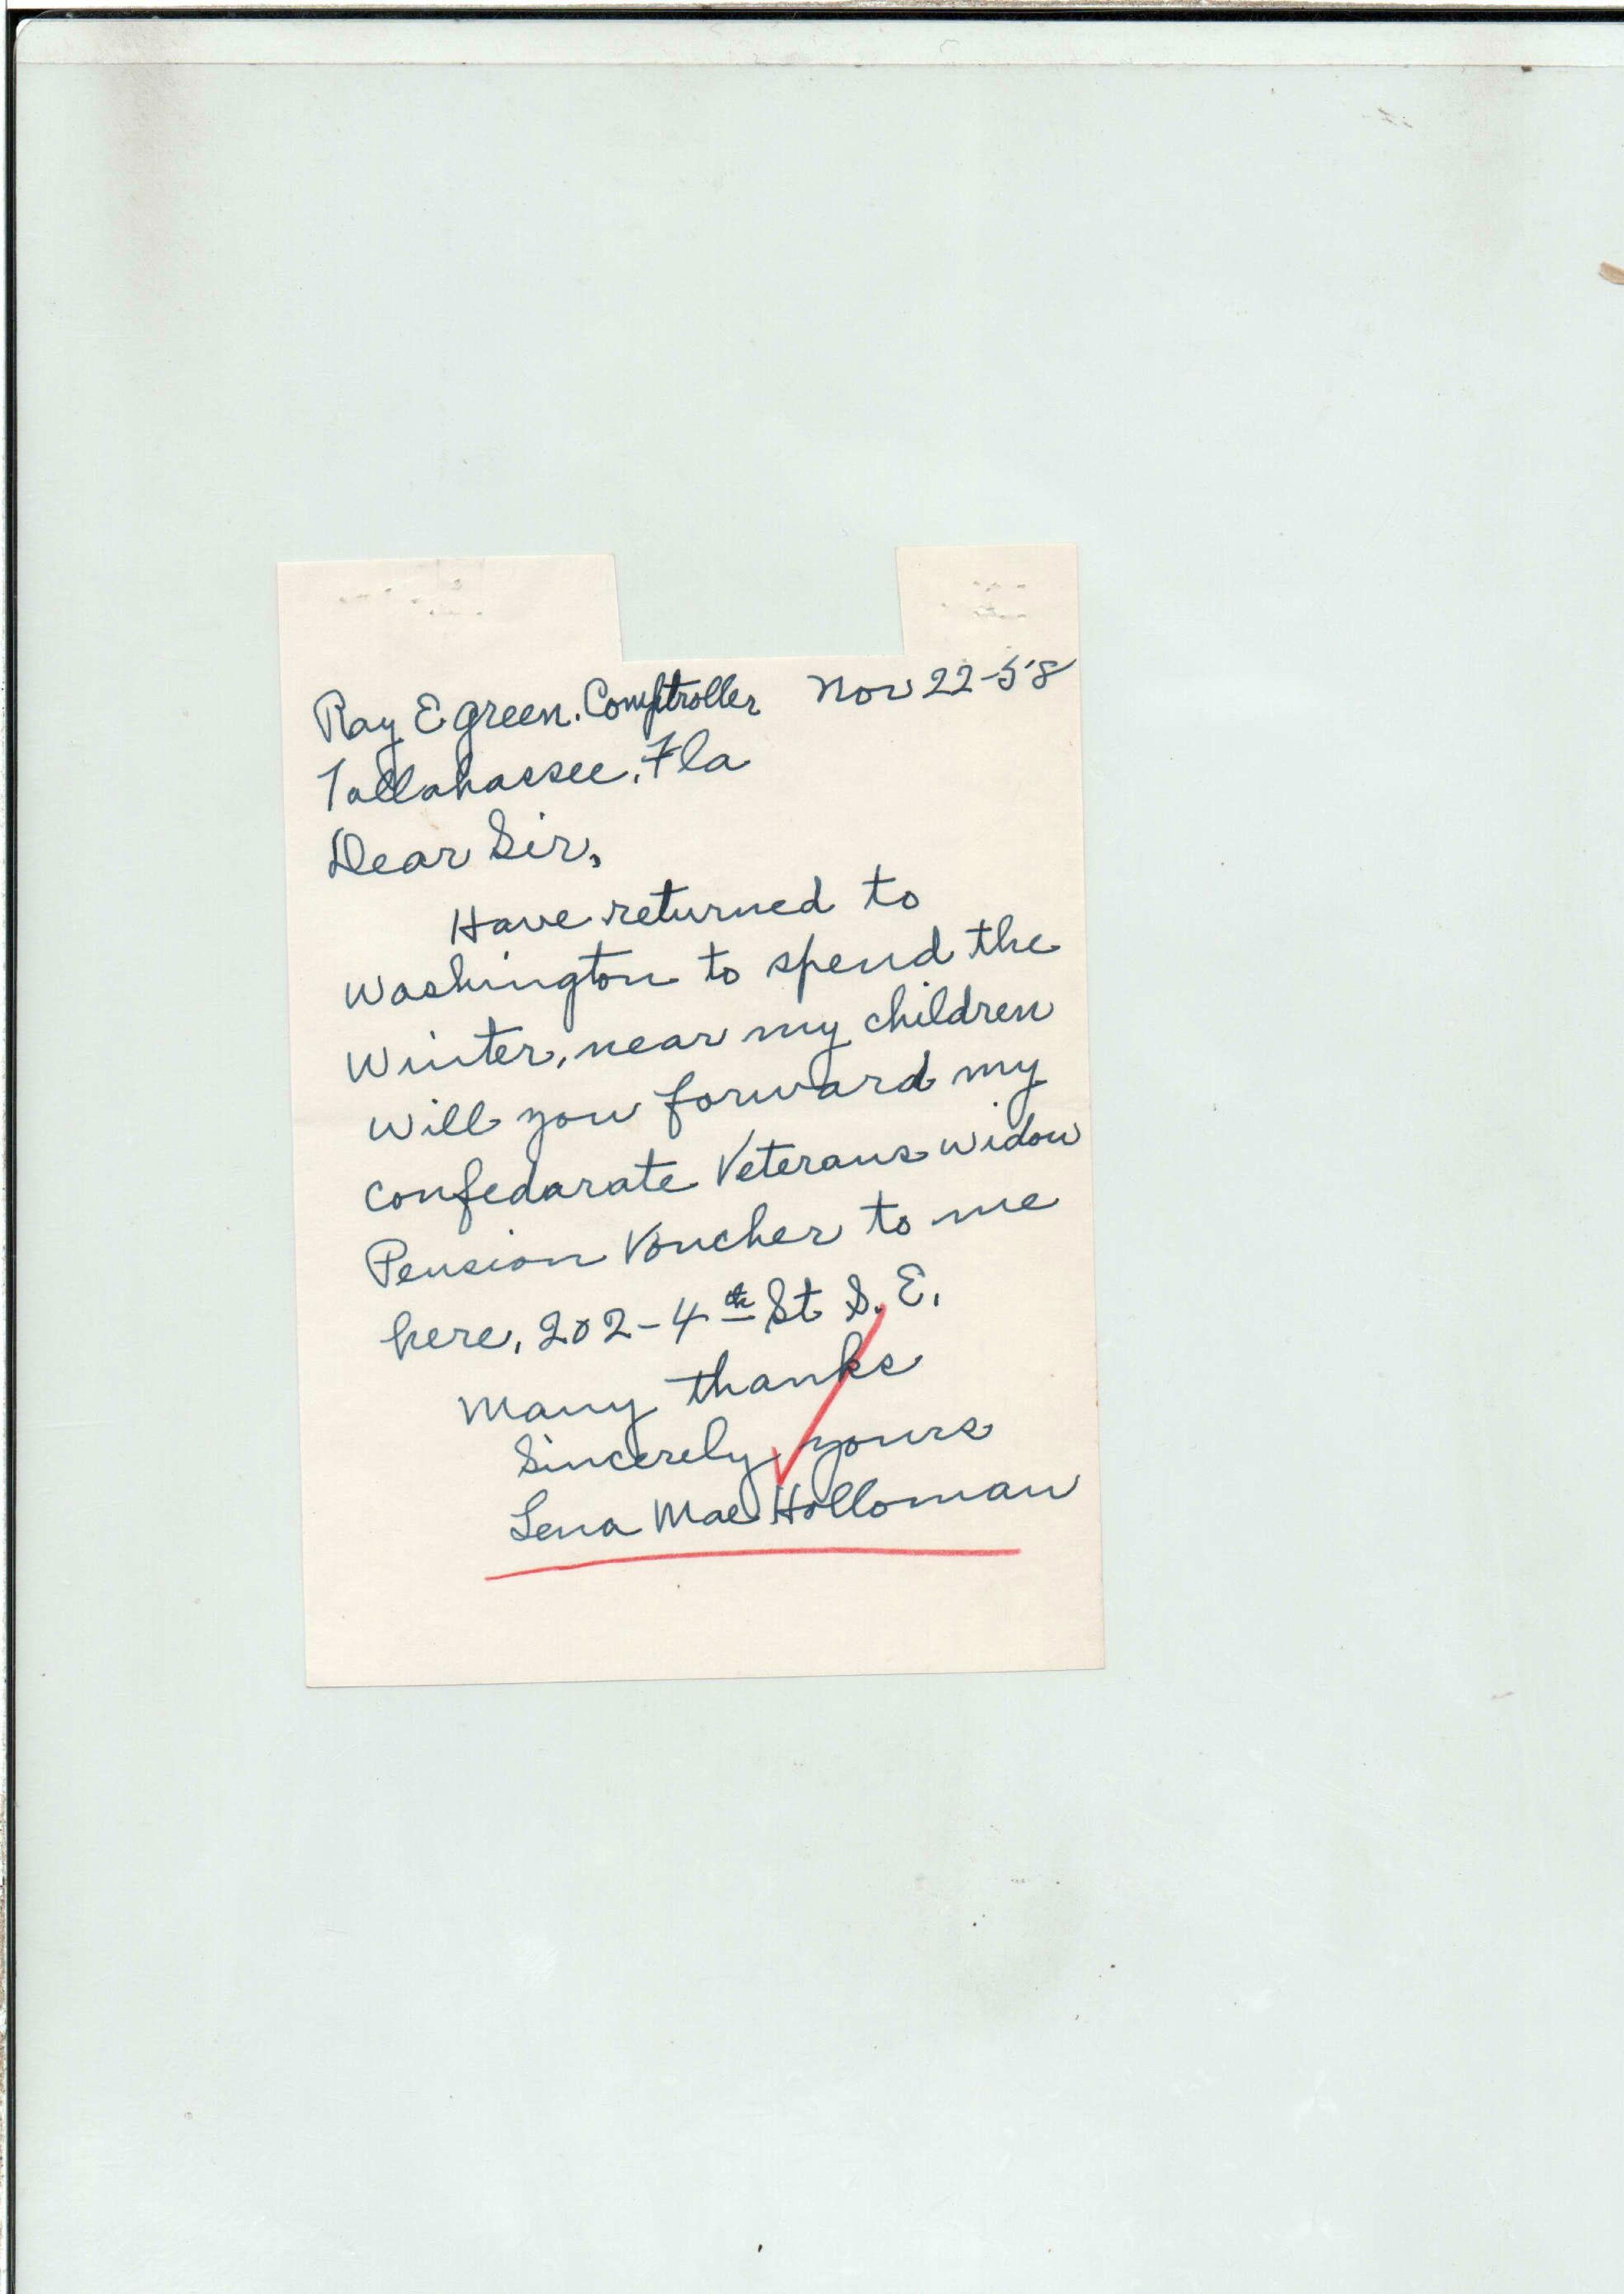 Ray E Green. Comptroller Nov 22-58
Tallahassee, Fla
Dear Sir,
Have returned to
Washington to spend the
Winter, near my children
Will you forward my
confedarate Veterans widow
Pension Voucher to me
here, 202-4th St S.E.
Many thanks
Sincerely yours
Lena Mae Holloman